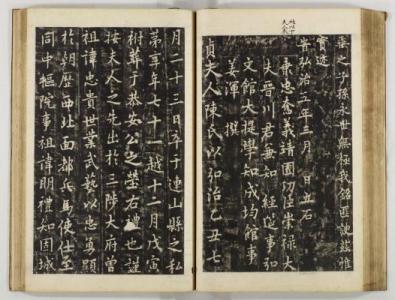 之子孫永世無極我銘匪諛茲維
實迹
弘治五年三月 日立石
秉忠奮義靖國功臣崇祿大
夫晉川君兼知經筵事弘
文館大提學知成均館事
姜渾 撰
貞夫人陳氏以弘治乙丑七
月二十三日卒于連山縣之私
第享年七十一越十二月戊寅
祔葬于恭安公之塋右禮也謹
按夫人之先出於三陟大府曾
祖諱忠貴世業武藝以忠勇顯
於朝歷西北面都兵馬使仕至
同中樞院事祖諱明禮知固城